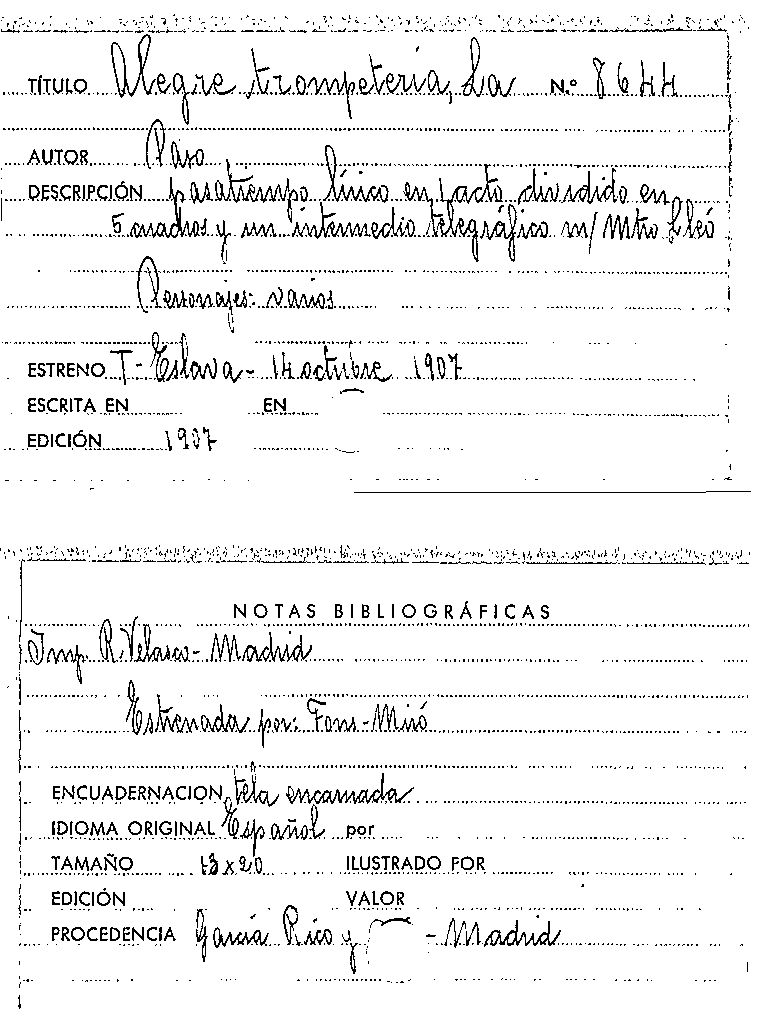 TÍTULO Alegre trompetería, La N.º 8644
AUTOR Paso
DESCRIPCIÓN pasatiempo lírico en 1 acto dividido en
5 cuadros y un intermedio telegráfico m/ Mtro Lleó
Personajes: varios
ESTRENO T- Eslava - 14 octubre 1907
ESCRITA EN EN
EDICIÓN 1907
NOTAS BIBLIOGRÁFICAS
Imp. R. Velasco - Madrid
Estrenada por: Fons-Miró
ENCUADERNACION tela encarnada
IDIOMA ORIGINAL Español por
TAMAÑO 13 x 20 ILUSTRADO POR
EDICIÓN VALOR
PROCEDENCIA García Rico y - Madrid